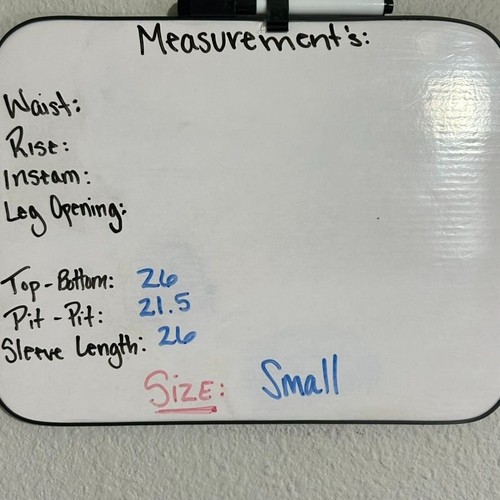 Measurement's:
Waist:
Rise:
Inseam:
Leg Opening:
Top-Bottom: 26
Pit-Pit: 21.5
Sleeve Length: 26
Size: Small